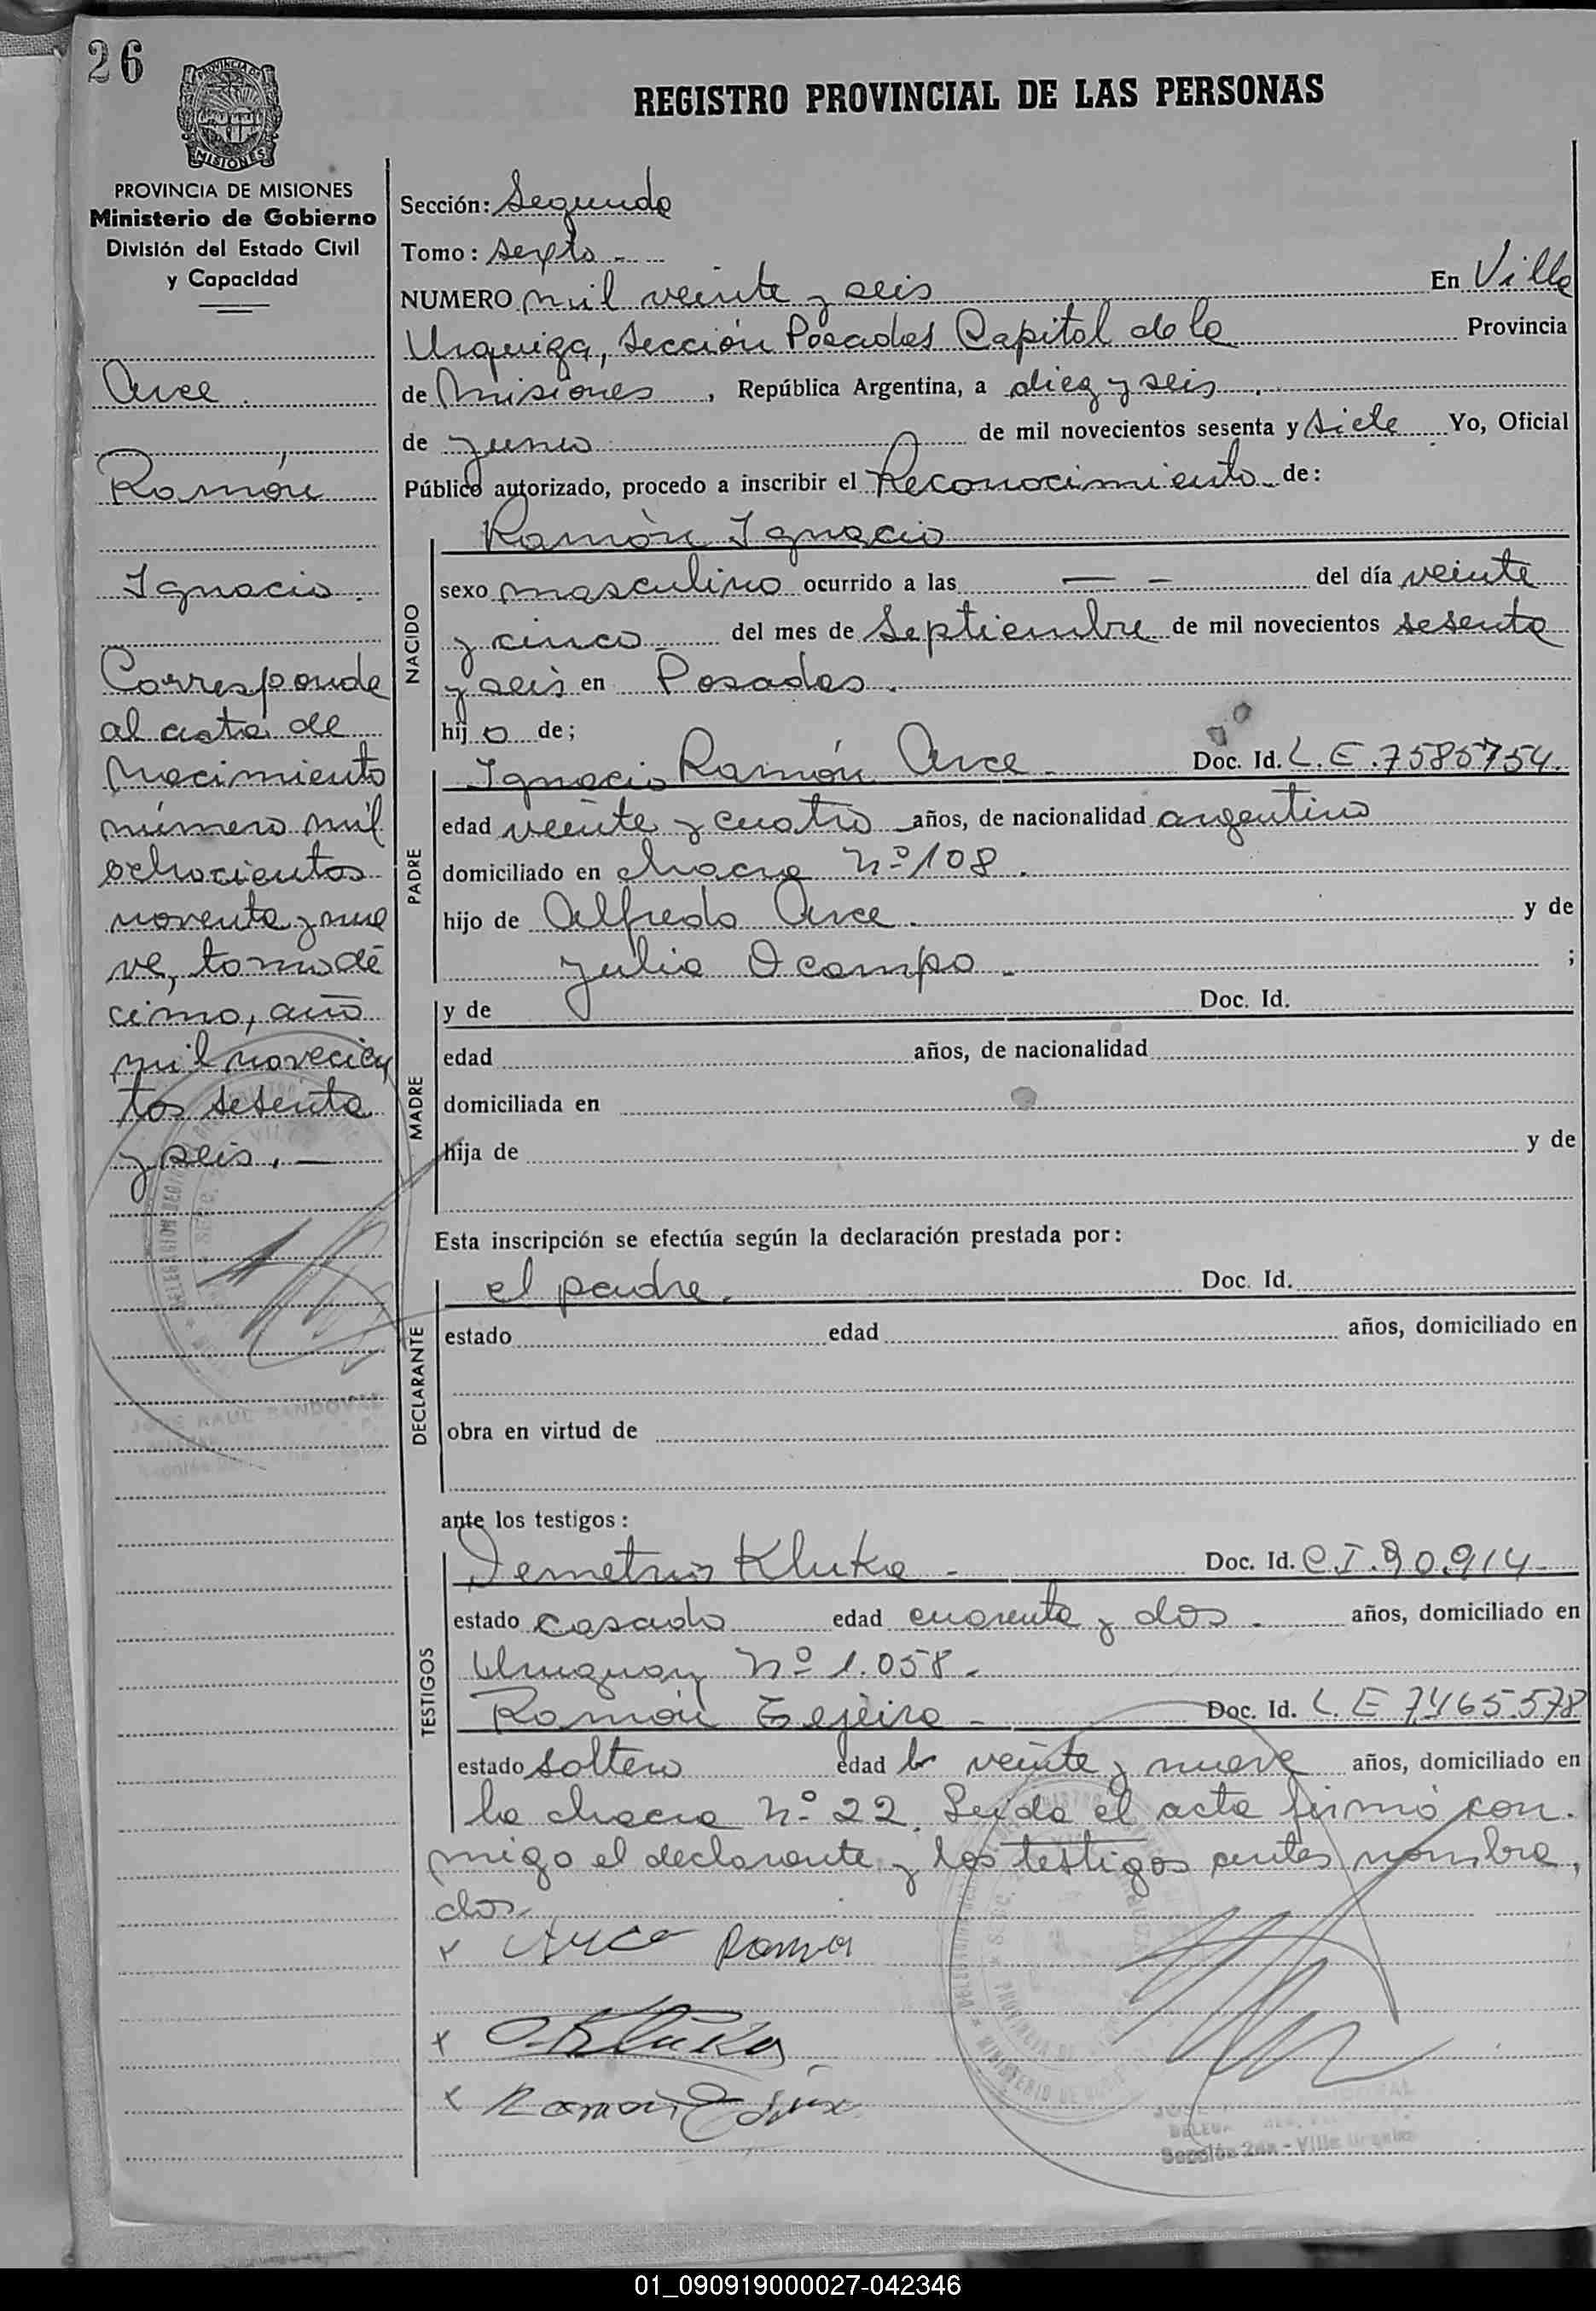 26
PROVINCIA DE
MISIONES
PROVINCIA DE MISIONES
Ministerio de Gobierno
División del Estado Civil
y Capacidad
Arce
Ramón
Ignacio.
Corresponde
al acta de
Nacimiento
número mil
ochocientos
noventa y nue
ve, tomo dé
cimo, año
mil novecien
tos sesenta
y seis. —
JOSE RAUL SANDOVAL
REGISTRO PROVINCIAL DE LAS PERSONAS
Sección: Segunda
Tomo: sexto
NUMERO mil veinte y seis En Villa
Urquiza, Sección Posadas Capital de la Provincia
de Misiones, República Argentina, a diez y seis
de junio de mil novecientos sesenta y siete Yo, Oficial
Público autorizado, procedo a inscribir el Reconocimiento de:
NACIDO
Ramón Ignacio
sexo masculino ocurrido a las — — del día veinte
y cinco del mes de Septiembre de mil novecientos sesenta
y seis en Posadas.
hijo de;
PADRE
Ignacio Ramón Arce Doc. Id. L.E.7585754.
edad veinte y cuatro años, de nacionalidad argentino
domiciliado en chacra Nº 108.
hijo de Alfredo Arce. y de
Julia Ocampo ;
MADRE
y de Doc. Id.
edad años, de nacionalidad
domiciliada en
hija de y de
Esta inscripción se efectúa según la declaración prestada por:
DECLARANTE
el padre. Doc. Id.
estado edad años, domiciliado en
obra en virtud de
ante los testigos:
TESTIGOS
Demetrio Kluka - Doc. Id. C.I. 90.914
estado casado edad cuarenta y dos. años, domiciliado en
Uruguay Nº 1.058.
Ramón Doc. Id. L E 7.465.578
estado soltero edad veinte y nueve años, domiciliado en
la chacra Nº 22. Leída el acta firmó con
migo el declarante y los testigos antes nombra
dos
x Arce Ramon
x Kluka
x Ramon
Sección 2da - Villa Urquiza
01_090919000027-042346